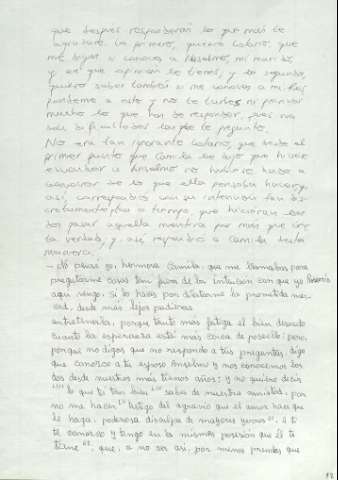 que despues responderás lo que más te
agradare. Lo primero, quiero Lotario, que
me digas si conoces a Anselmo, mi marido,
y en que opinion le tienes; y lo segundo,
quiero saber también si me conoces a mi. Res
pondeme a esto y no te turbes ni pienses
mucho lo que has de responder, pues no
son dificultades las que te pregunto.
No era tan ignorante Lotario, que desde el
primer punto que Camila le dijo que hiciese
esconder a Anselmo no hubiese dado a
en lo que ella pensaba hacer y,
así, correspondió con su intencion tan dis
cretamente, y tan a tiempo, que hicieran los
dos pasar aquella mentira por más que cier
ta verdad, y, así, respondio a Camila desta
manera:
- No pensé yo, hermosa Camila, que me llamabas para
preguntarme cosas tan fuera de la intención con que yo
aquí vengo. Si lo haces por dilatarme la prometida mer-
ced, desde más lejos pudieras
entretenerla, porque tanto más fatiga el bien deseado
cuanto la esperanza está más cerca de poseello; pero,
porque no digas que no respondo a tus preguntas, digo
que conozco a tu esposo Anselmo y nos conocemos los
dos desde nuestros más tiernos años; y no quiero decir
lo que tú tan bien sabes de nuestra amistad, por
no me hacer testigo del agravio que el amor hace que
le haga, poderosa disculpa de mayores yerros. A ti
te conozco y tengo en la misma posesión que él te
tiene, que, a no ser así, por menos prendas que